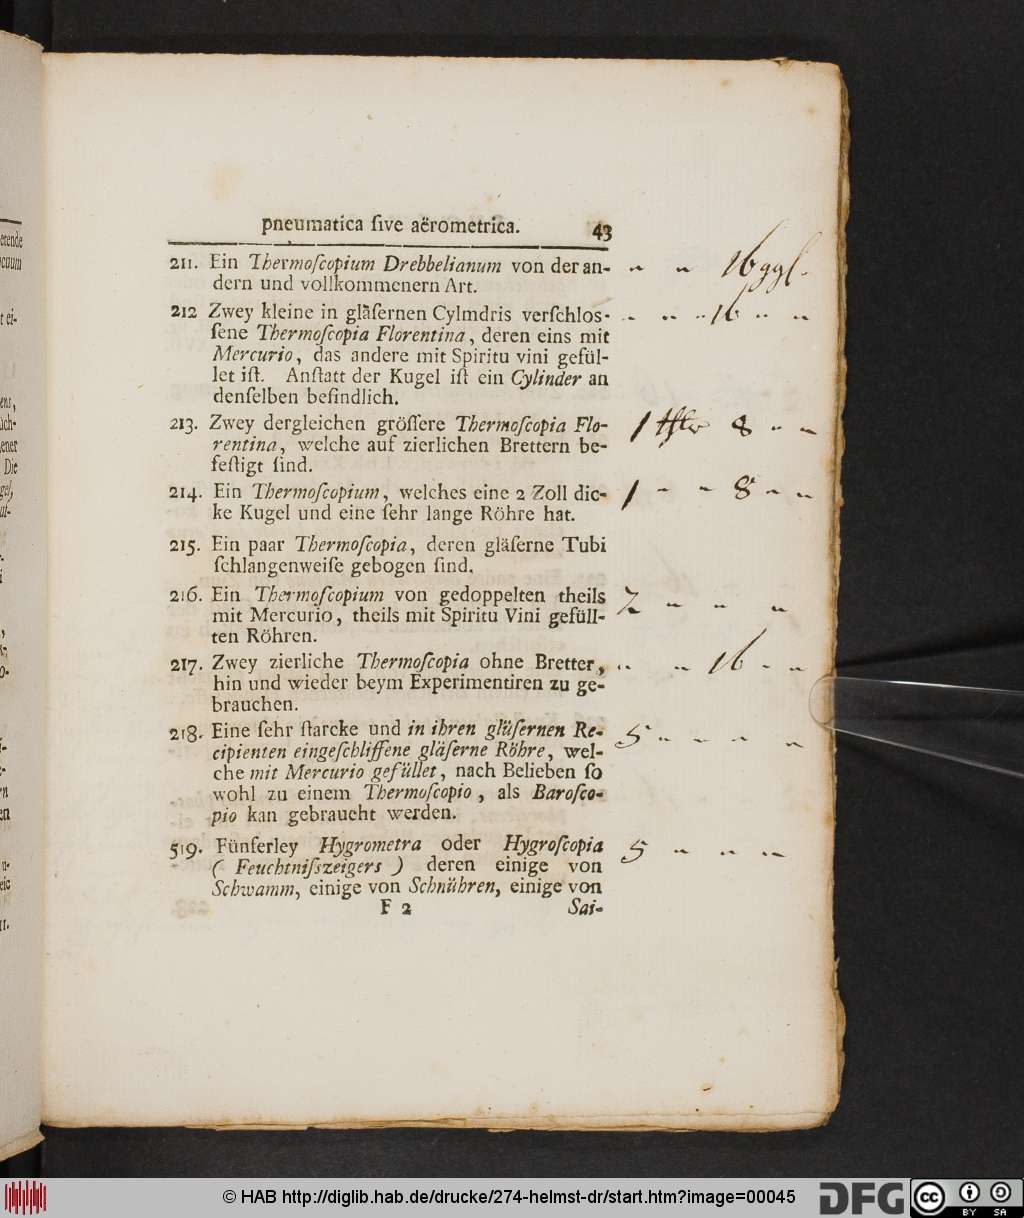 pneumatica ſive aërometrica. 43
211. Ein Thermoſcopium Drebbelianum von der an- - - 16 ggl.
dern und vollkommenern Art.
212 Zwey kleine in gläſernen Cylmdris verſchloſ- - - - 16 - -
ſene Thermoſcopia Florentina, deren eins mit
Mercurio, das andere mit Spiritu vini gefül-
let iſt. Anſtatt der Kugel iſt ein Cylinder an
denſelben befindlich.
213. Zwey dergleichen gröſſere Thermoſcopia Flo- 1 8 - -
rentina, welche auf zierlichen Brettern be-
feſtigt ſind.
214. Ein Thermoſcopium, welches eine 2 Zoll dic- 1 - - 8 - -
ke Kugel und eine ſehr lange Röhre hat.
215. Ein paar Thermoſcopia, deren gläſerne Tubi
ſchlangenweiſe gebogen ſind.
216. Ein Thermoſcopium von gedoppelten theils 2 - - -
mit Mercurio, theils mit Spiritu Vini gefüll-
ten Röhren.
217. Zwey zierliche Thermoſcopia ohne Bretter, - - 16 - -
hin und wieder beym Experimentiren zu ge-
brauchen.
218. Eine ſehr ſtarcke und in ihren gläſernen Re- 5 - - - -
cipienten eingeſchliffene gläſerne Röhre, wel-
che mit Mercurio gefüllet, nach Belieben ſo
wohl zu einem Thermoſcopio, als Baroſco-
pio kan gebraucht werden.
519. Fünferley Hygrometra oder Hygroſcopia 5 - - -
( Feuchtniſszeigers ) deren einige von
Schwamm, einige von Schnühren, einige von
F 2 Sai-
© HAB http://diglib.hab.de/drucke/274-helmst-dr/start.htm?image=00045
DFG
cc
BY SA